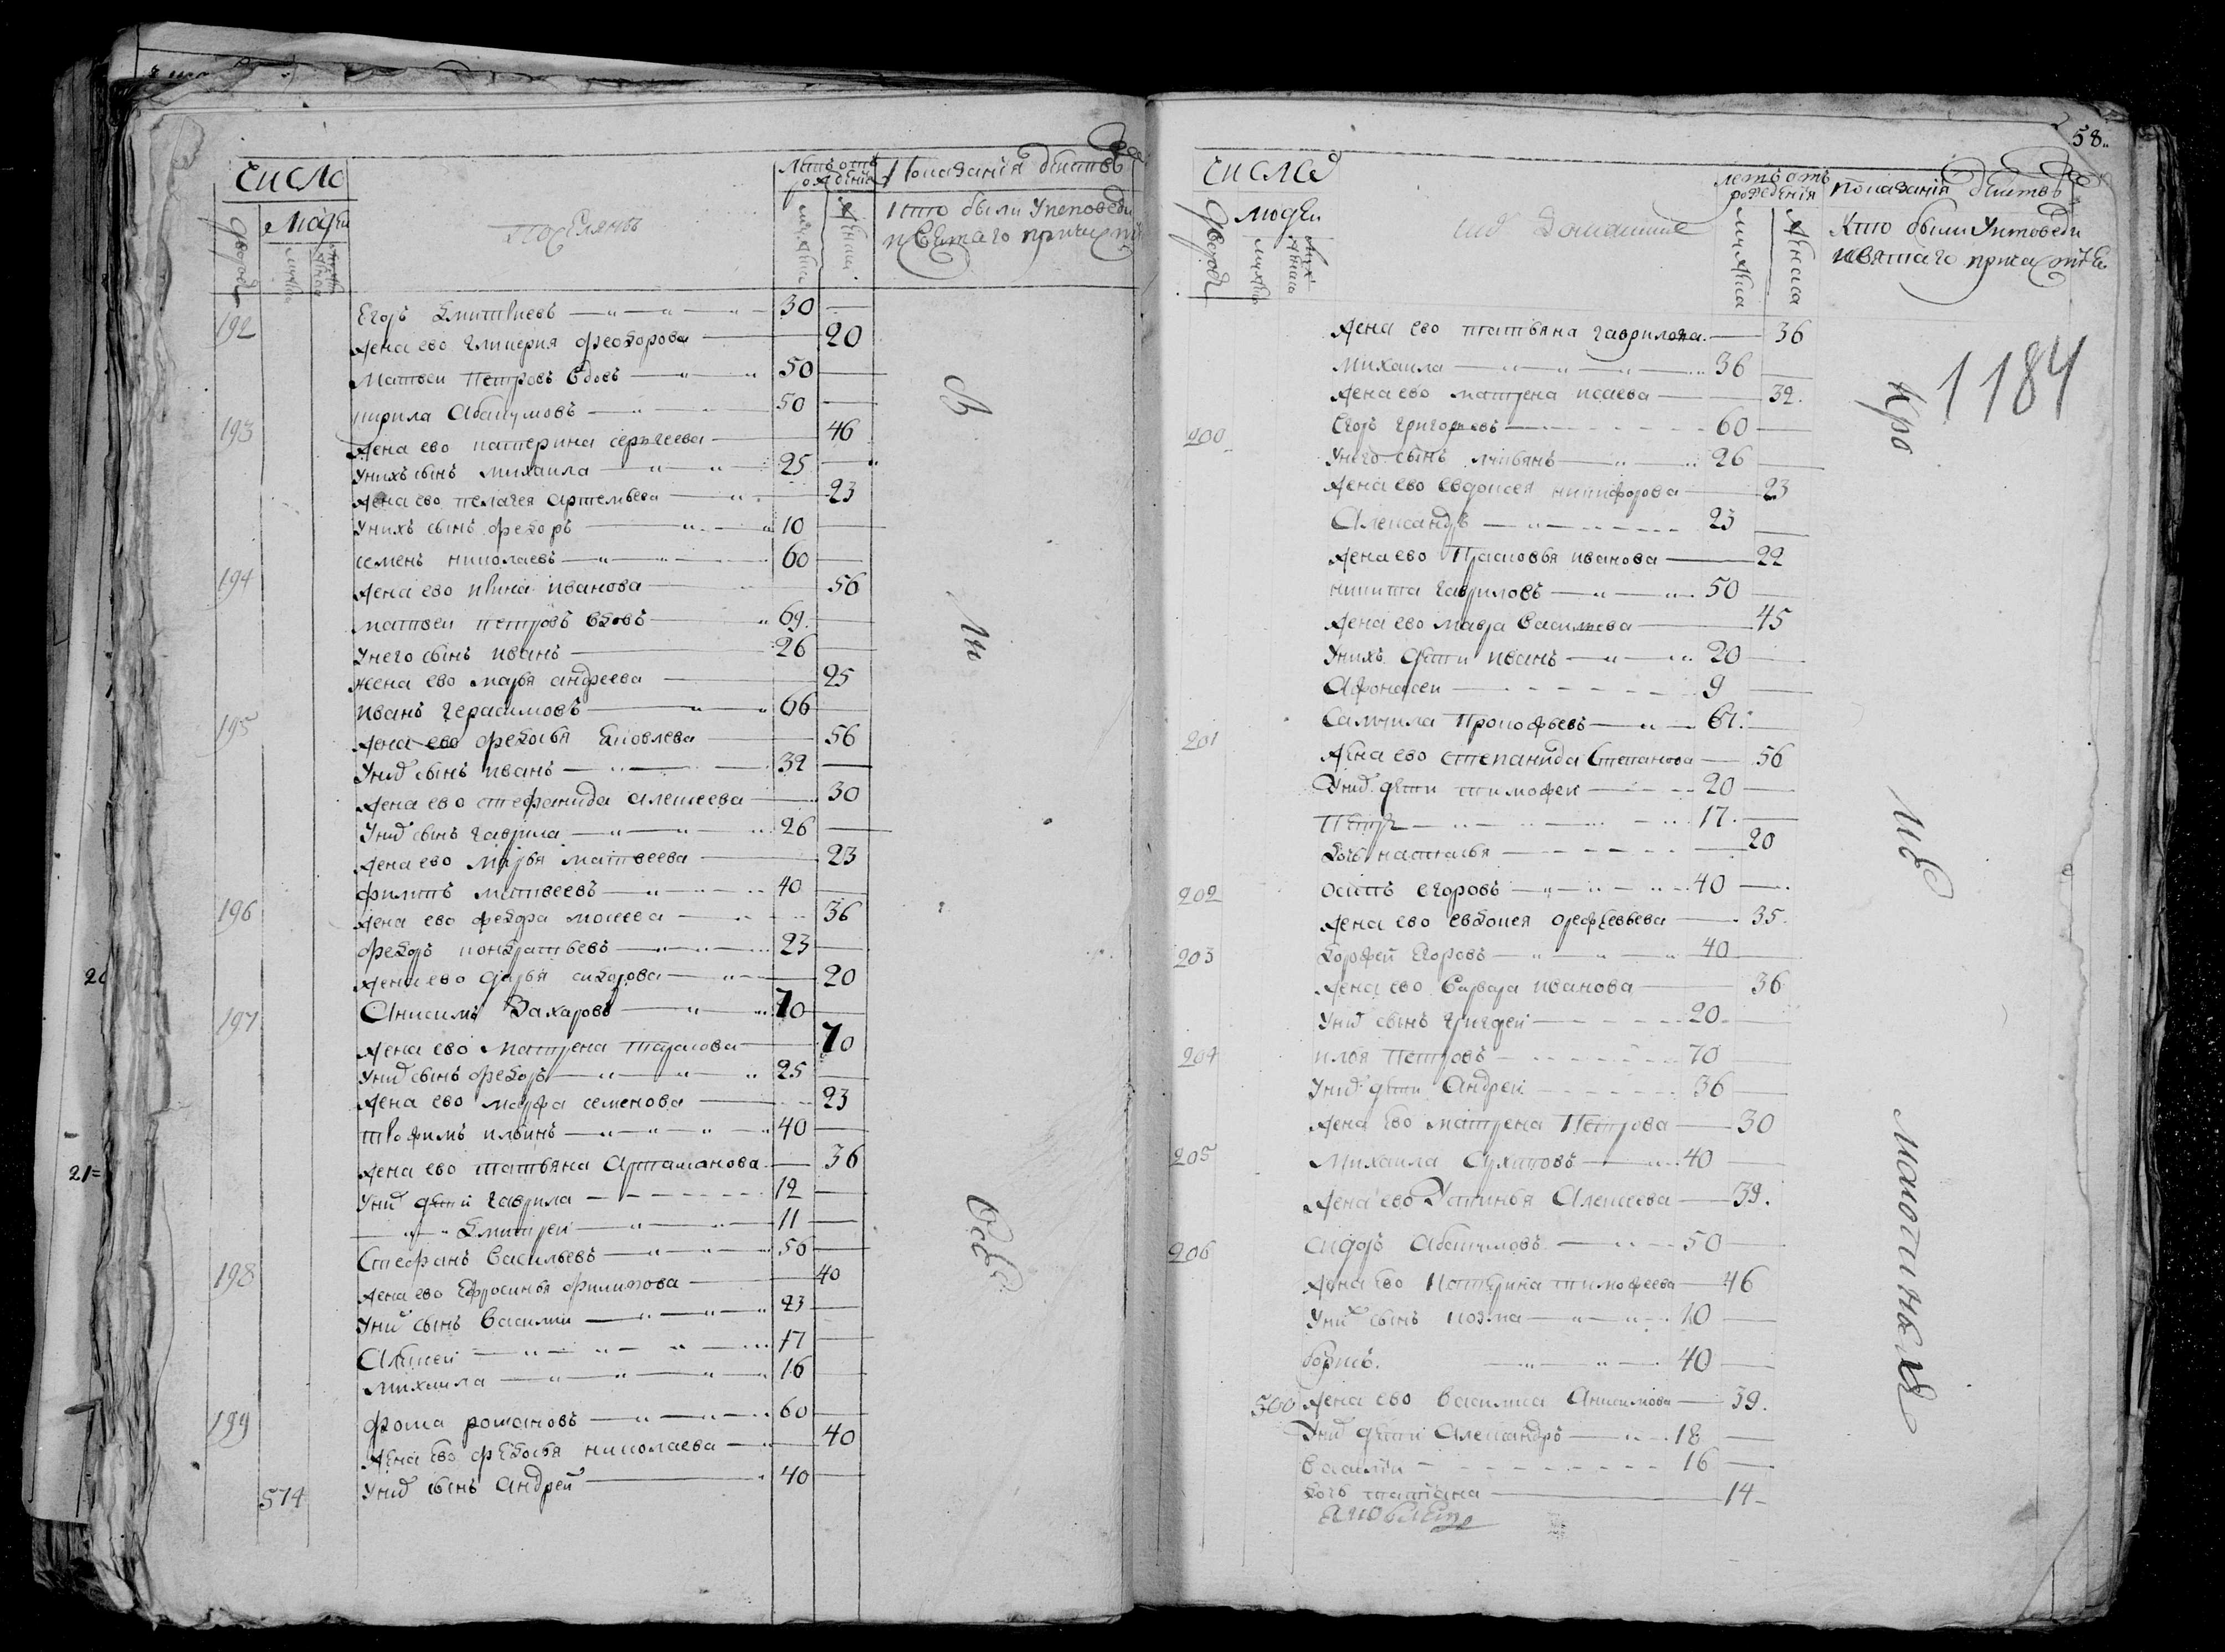 число
дворовъ
людей
мужска
женска
поселяны
Лѣтъ отъ рожденія
мужска
женска
Показанія дѣйствъ
кто были у исповеди
и святаго причастія
192 Егоръ Дмитріевъ 30
жена ево Гликерия Федорова 20
Матвеи Петровъ вдовъ 50
193 кирила Абакумовъ 50
жена ево катерина сергеева 46
у нихъ сынъ михаила 25
жена ево пелагея артемьева 23
у нихъ сынъ федоръ 10
194 семенъ николаевъ 60
жена ево ирина иванова 56
матвеи петровъ вдовъ 69
у него сынъ иванъ 26
жена ево марья андреева 25
195 иванъ герасимовъ 66
жена ево федосья яковлева 56
у нихъ сынъ иванъ 32
жена ево стефанида алексеева 30
у нихъ сынъ гаврила 26
жена ево марья матвеева 23
196 филипъ матвеевъ 40
жена ево федора моисеева 36
федоръ кондратьевъ 23
жена ево дарья сидорова 20
197 Анисимъ Захаровъ 70
жена ево матрена тарасова 70
у нихъ сынъ федоръ 25
жена ево марфа семенова 23
трофимъ ильинъ 40
жена ево татьяна Артамонова 36
у нихъ дѣти гаврила 12
дмитреи 11
198 Стефанъ Васильевъ 56
жена ево Ефросинья филипова 40
у нихъ сынъ Василии 23
Алексеи 17
михаила 16
199 фома романовъ 60
жена ево федосья николаева 40
574 у нихъ сынъ андреи 40
въ
ли
всѣ
58
число
дворовъ
людей
мужска
женска
ихъ домашние
летъ отъ рождения
мужска
женска
показанія дѣйствъ
Кто были у исповеди
и святаго причастія
1184
жена ево татьяна гаврилова 36
михаила 36
жена ево матрена исаева 32
200 Егоръ григорьевъ 60
у него сынъ лукьянъ 26
жена ево евдокея никифорова 23
Александръ 23
жена ево Прасковья иванова 22
никита гавриловъ 50
жена ево мавра васильева 45
у нихъ дети иванъ 20
Афонасеи 9
201 самоила Прокофьевъ 61
жена ево степанида Степанова 56
у нихъ дети тимофеи 20
Петръ 17
дочь наталья 20
202 осипъ егоровъ 40
жена ево евдокея ерофеевьева 35
203 дорофеи егоровъ 40
жена ево варвара иванова 36
у нихъ сынъ григореи 20
204 илья петровъ 70
у нихъ дѣти Андреи 36
жена ево матрена Петрова 30
205 михаила Архиповъ 40
жена ево Устинья Алексеева 39
206 сидоръ Абакумовъ 50
жена ево Катерина тимофеева 46
у нихъ сынъ козма 20
борисъ 40
500 жена ево василиса Анисимова 39
у нихъ дѣти Александръ 18
василіи 16
дочь татіана 14
Кро
мѣ
малотнихъ